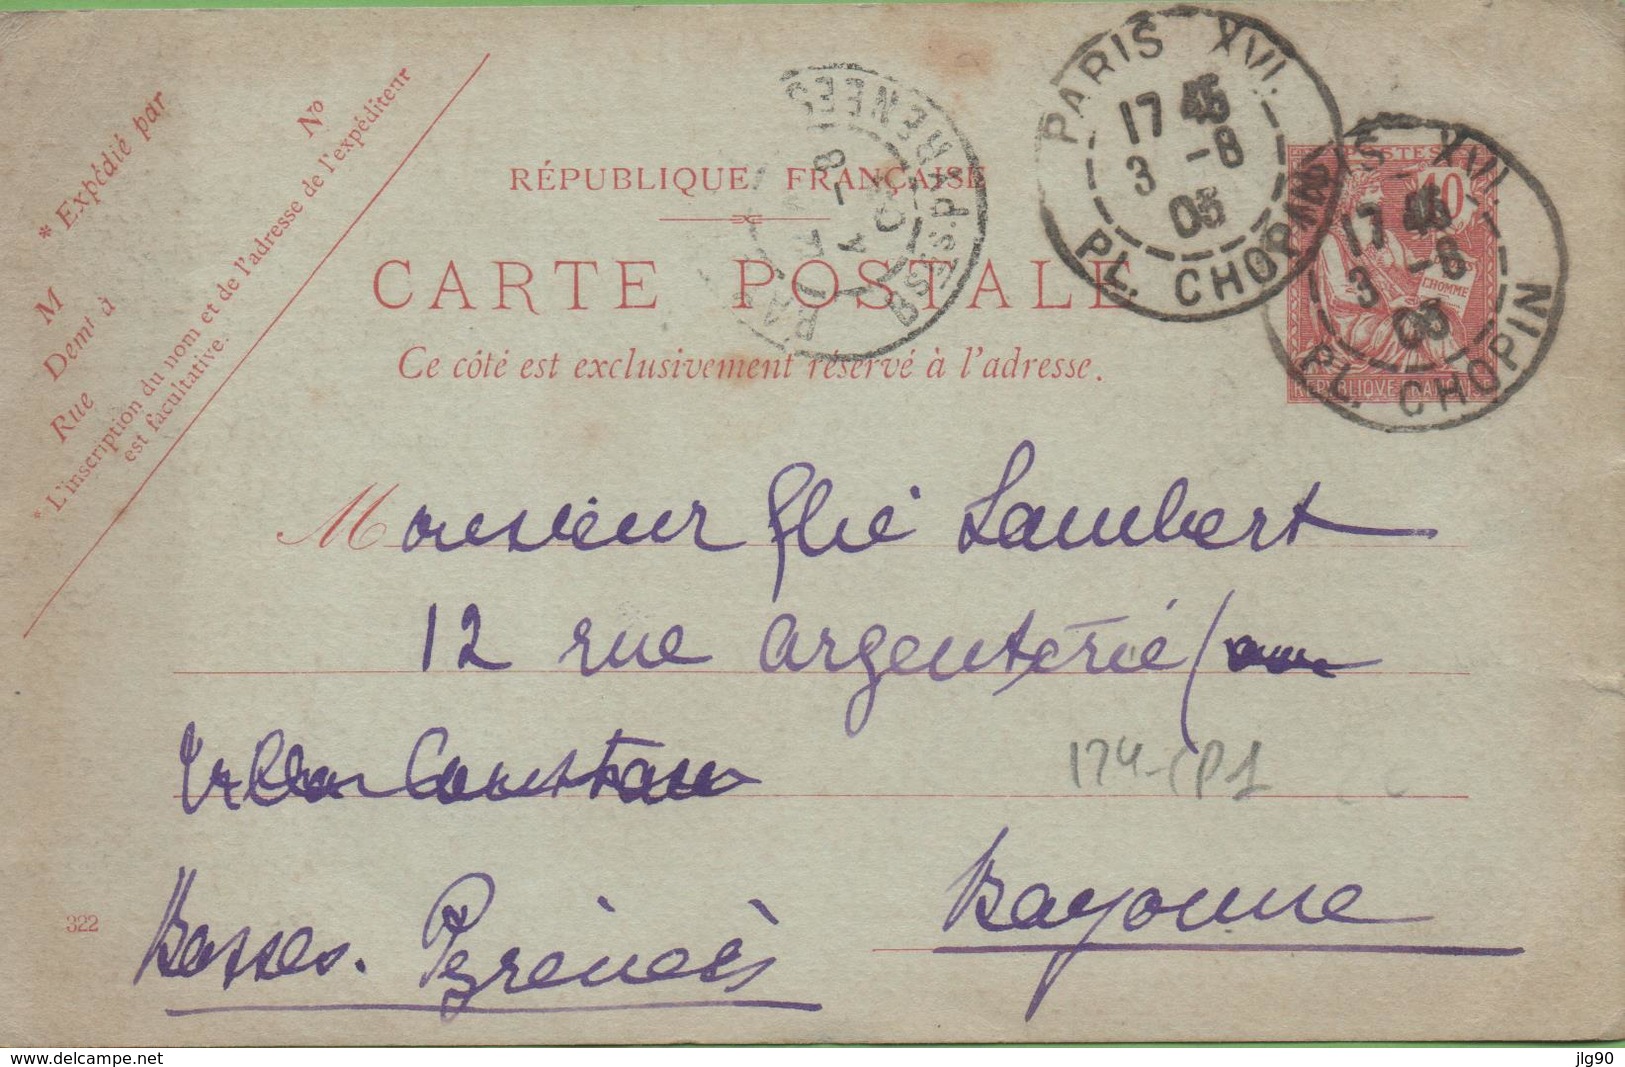 * Expédié par
M
Demt à
Rue
N°
* L'inscription du nom et de l'adresse de l'expéditeur
est facultative.
RÉPUBLIQUE FRANÇAISE
CARTE POSTALE
Ce côté est exclusivement réservé à l'adresse.
PARIS XVI.
17 45
3 -8
05
PL. CHOPIN
PARIS XVI.
17 45
3 -8
05
PL. CHOPIN
BSES PYRENEES
POSTES
10
HOMME
REPUBLIQUE FRANCAISE
Monsieur Elie Lambert
12 rue Argenterie (
Villa Constance
174-CP1
Bayonne
Basses. Pyrénées
322
https://www.delcampe.net
jlg90